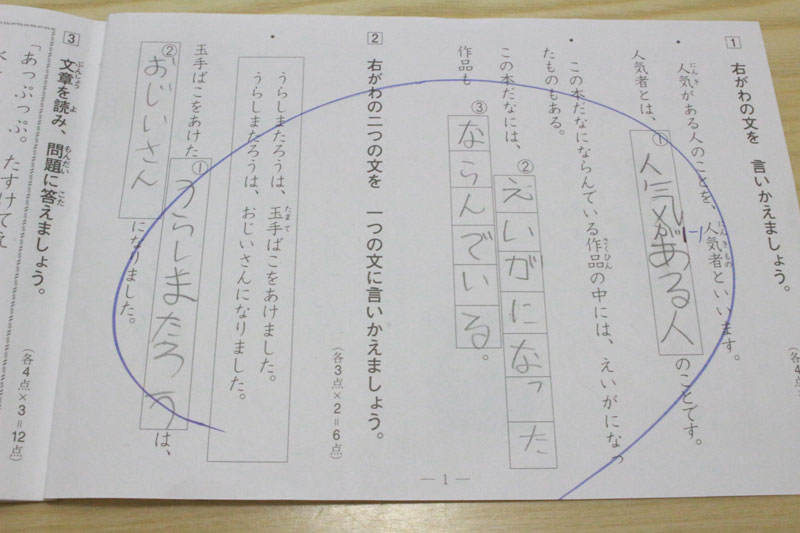 1 右がわの文を 言いかえましょう。
人気がある人のことを、人気者といいます。
人気者とは、①人気がある人のことです。
この本だなにならんでいる作品の中には、えいがになっ
たものもある。
この本だなには、②えいがになった
作品も③ならんでいる。
2 右がわの二つの文を 一つの文に言いかえましょう。
(各3点×2=6点)
うらしまたろうは、玉手ばこをあけました。
うらしまたろうは、おじいさんになりました。
玉手ばこをあけた①うらしまたろうは、
②おじいさんになりました。
3 文章を読み、問題に答えましょう。
(各4点×3=12点)
「あっぷっぷ。たすけてえ
— 1 —